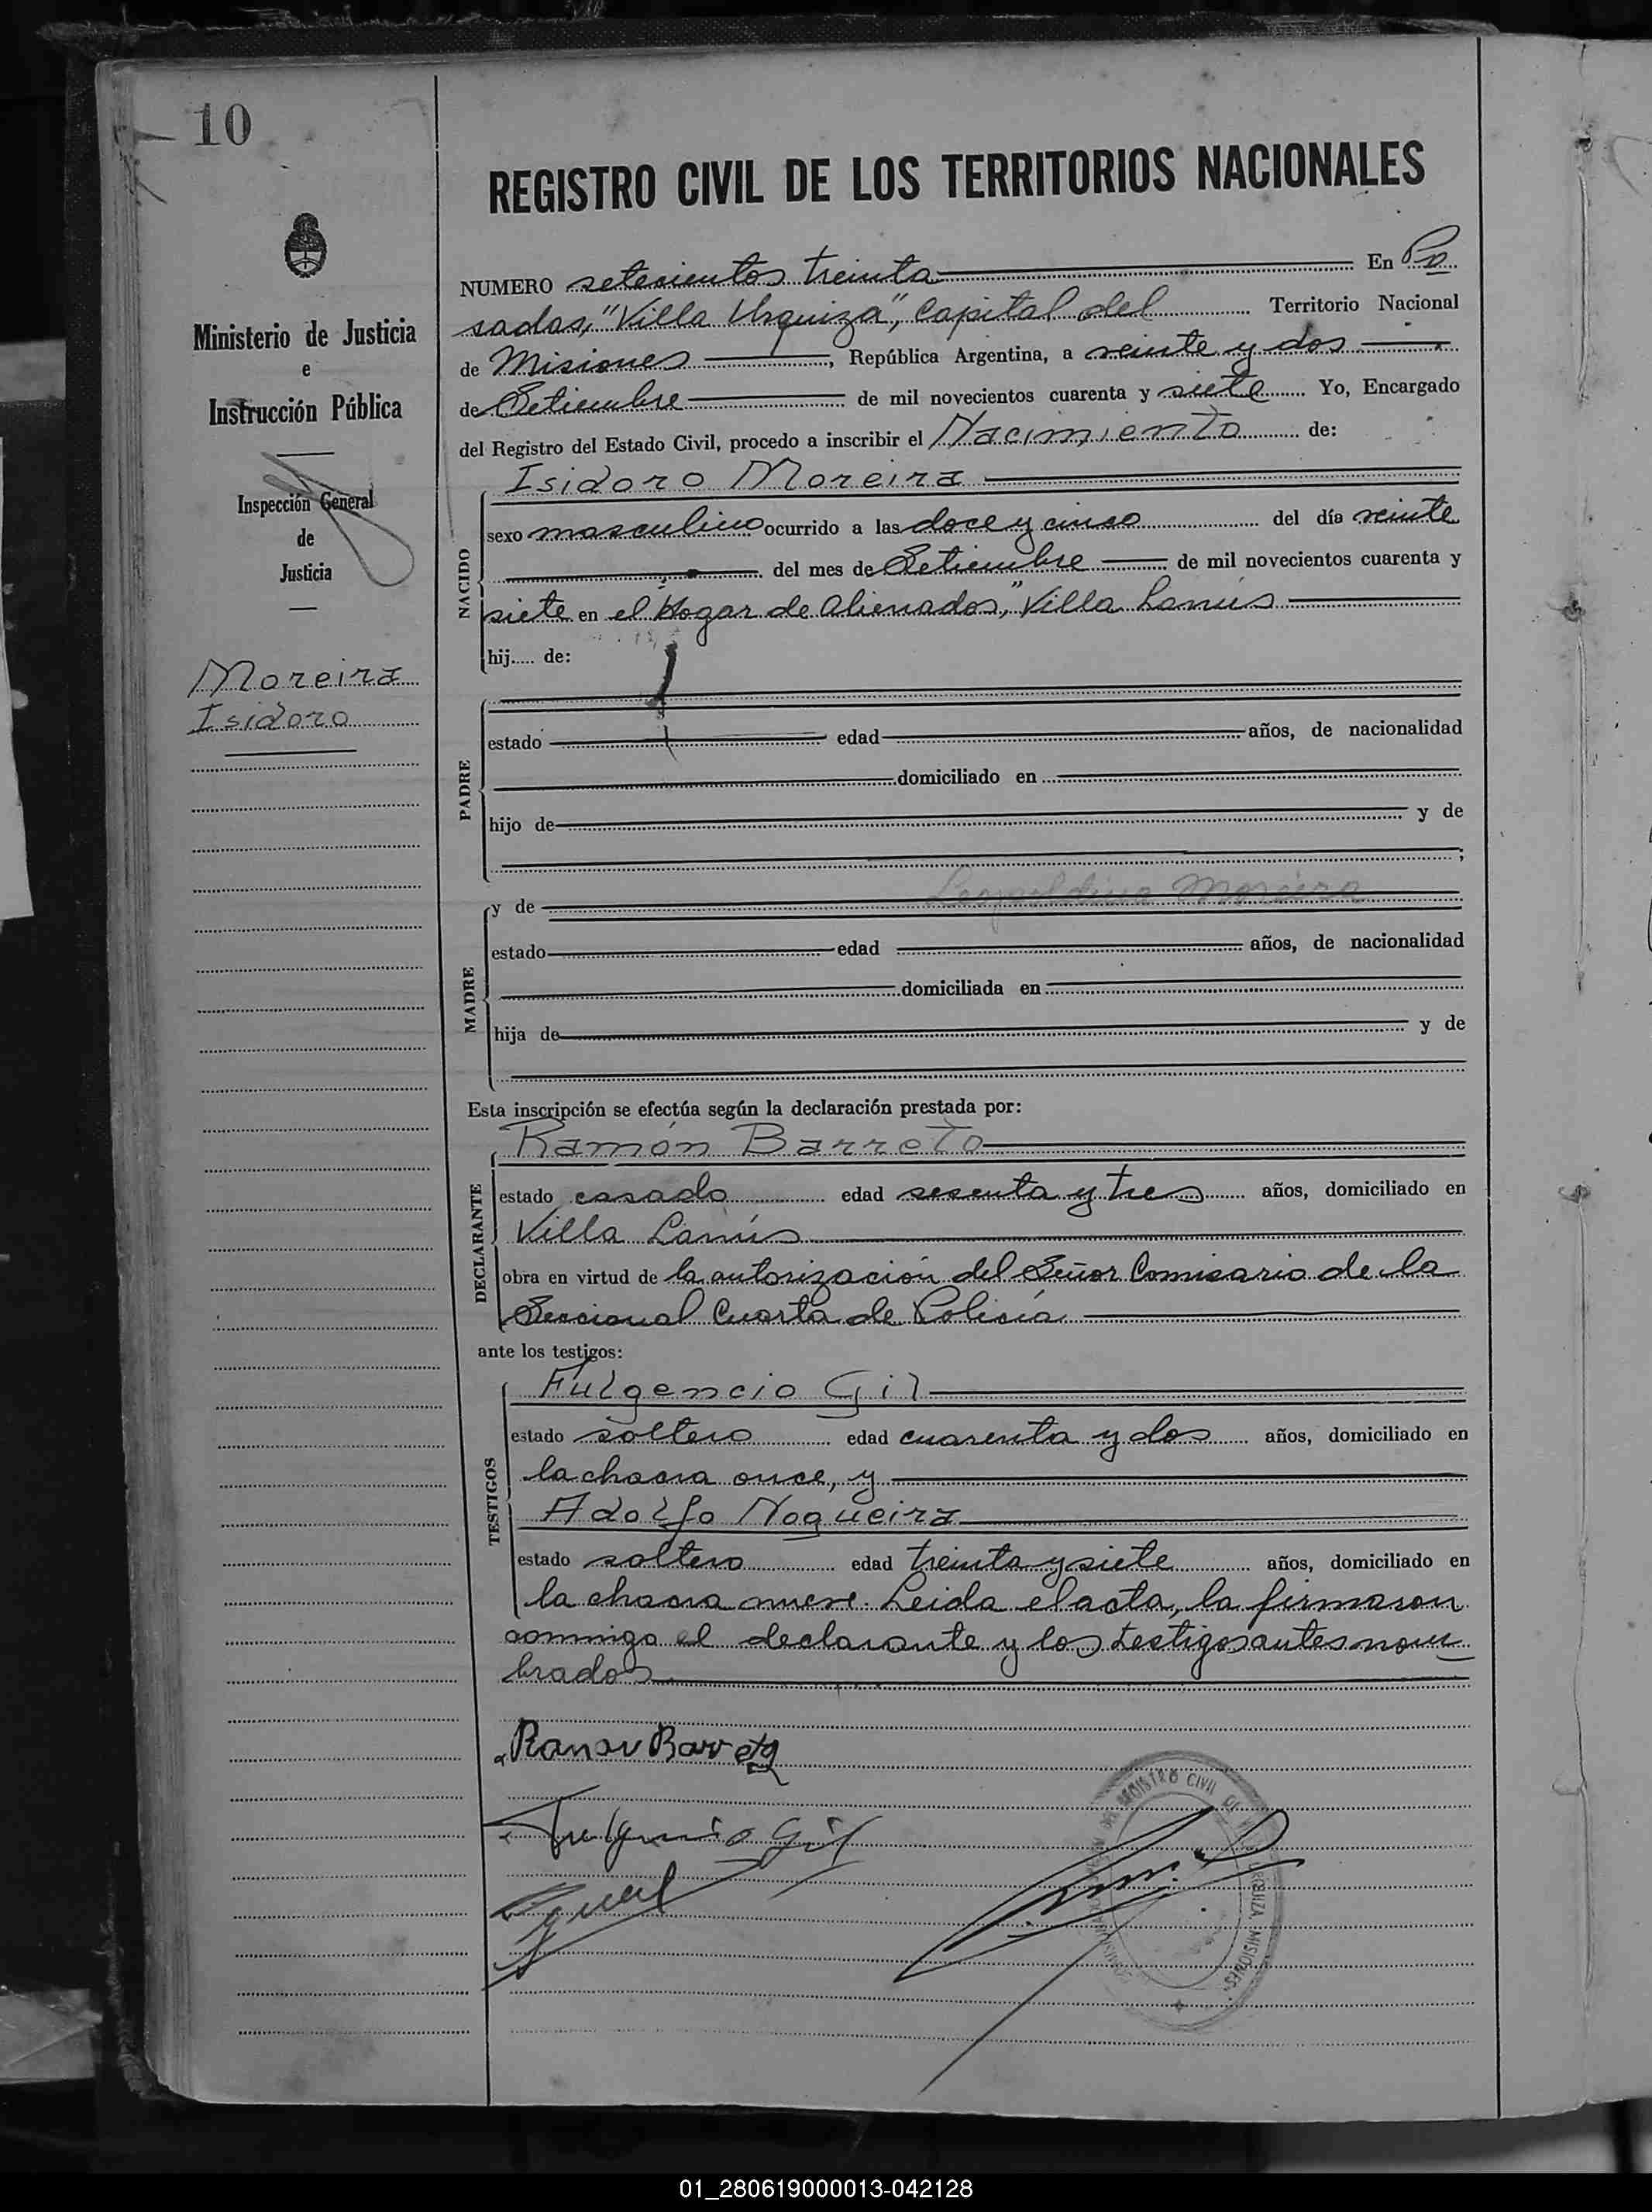 10
REGISTRO CIVIL DE LOS TERRITORIOS NACIONALES
Ministerio de Justicia
e
Instrucción Pública
Inspección General
de
Justicia
Moreira
Isidoro
NUMERO setecientos treinta En Po
sadas, "Villa Urquiza", Capital del Territorio Nacional
de Misiones, República Argentina, a veinte y dos
de Setiembre de mil novecientos cuarenta y siete Yo, Encargado
del Registro del Estado Civil, procedo a inscribir el Nacimiento de:
NACIDO
Isidoro Moreira
sexo masculino ocurrido a las doce y cinco del día veinte
del mes de Setiembre de mil novecientos cuarenta y
siete en el Hogar de Alienados, "Villa Lanús
hij..... de:
PADRE
estado edad años, de nacionalidad
domiciliado en
hijo de y de
;
MADRE
y de Leopoldina Moreira
estado edad años, de nacionalidad
domiciliada en
hija de y de
Esta inscripción se efectúa según la declaración prestada por:
DECLARANTE
Ramón Barreto
estado casado edad sesenta y tres años, domiciliado en
Villa Lanús
obra en virtud de la autorización del Señor Comisario de la
Seccional Cuarta de Policía
ante los testigos:
TESTIGOS
Fulgencio Gil
estado soltero edad cuarenta y dos años, domiciliado en
la chacra once, y
Adolfo Nogueira
estado soltero edad treinta y siete años, domiciliado en
la chacra nueve. Leida el acta, la firmaron
conmigo el declarante y los testigos antes nom
brados
Ramon Barreto
Fulgencio Gil
REGISTRO CIVIL DE
URQUIZA MISIONES
01_280619000013-042128